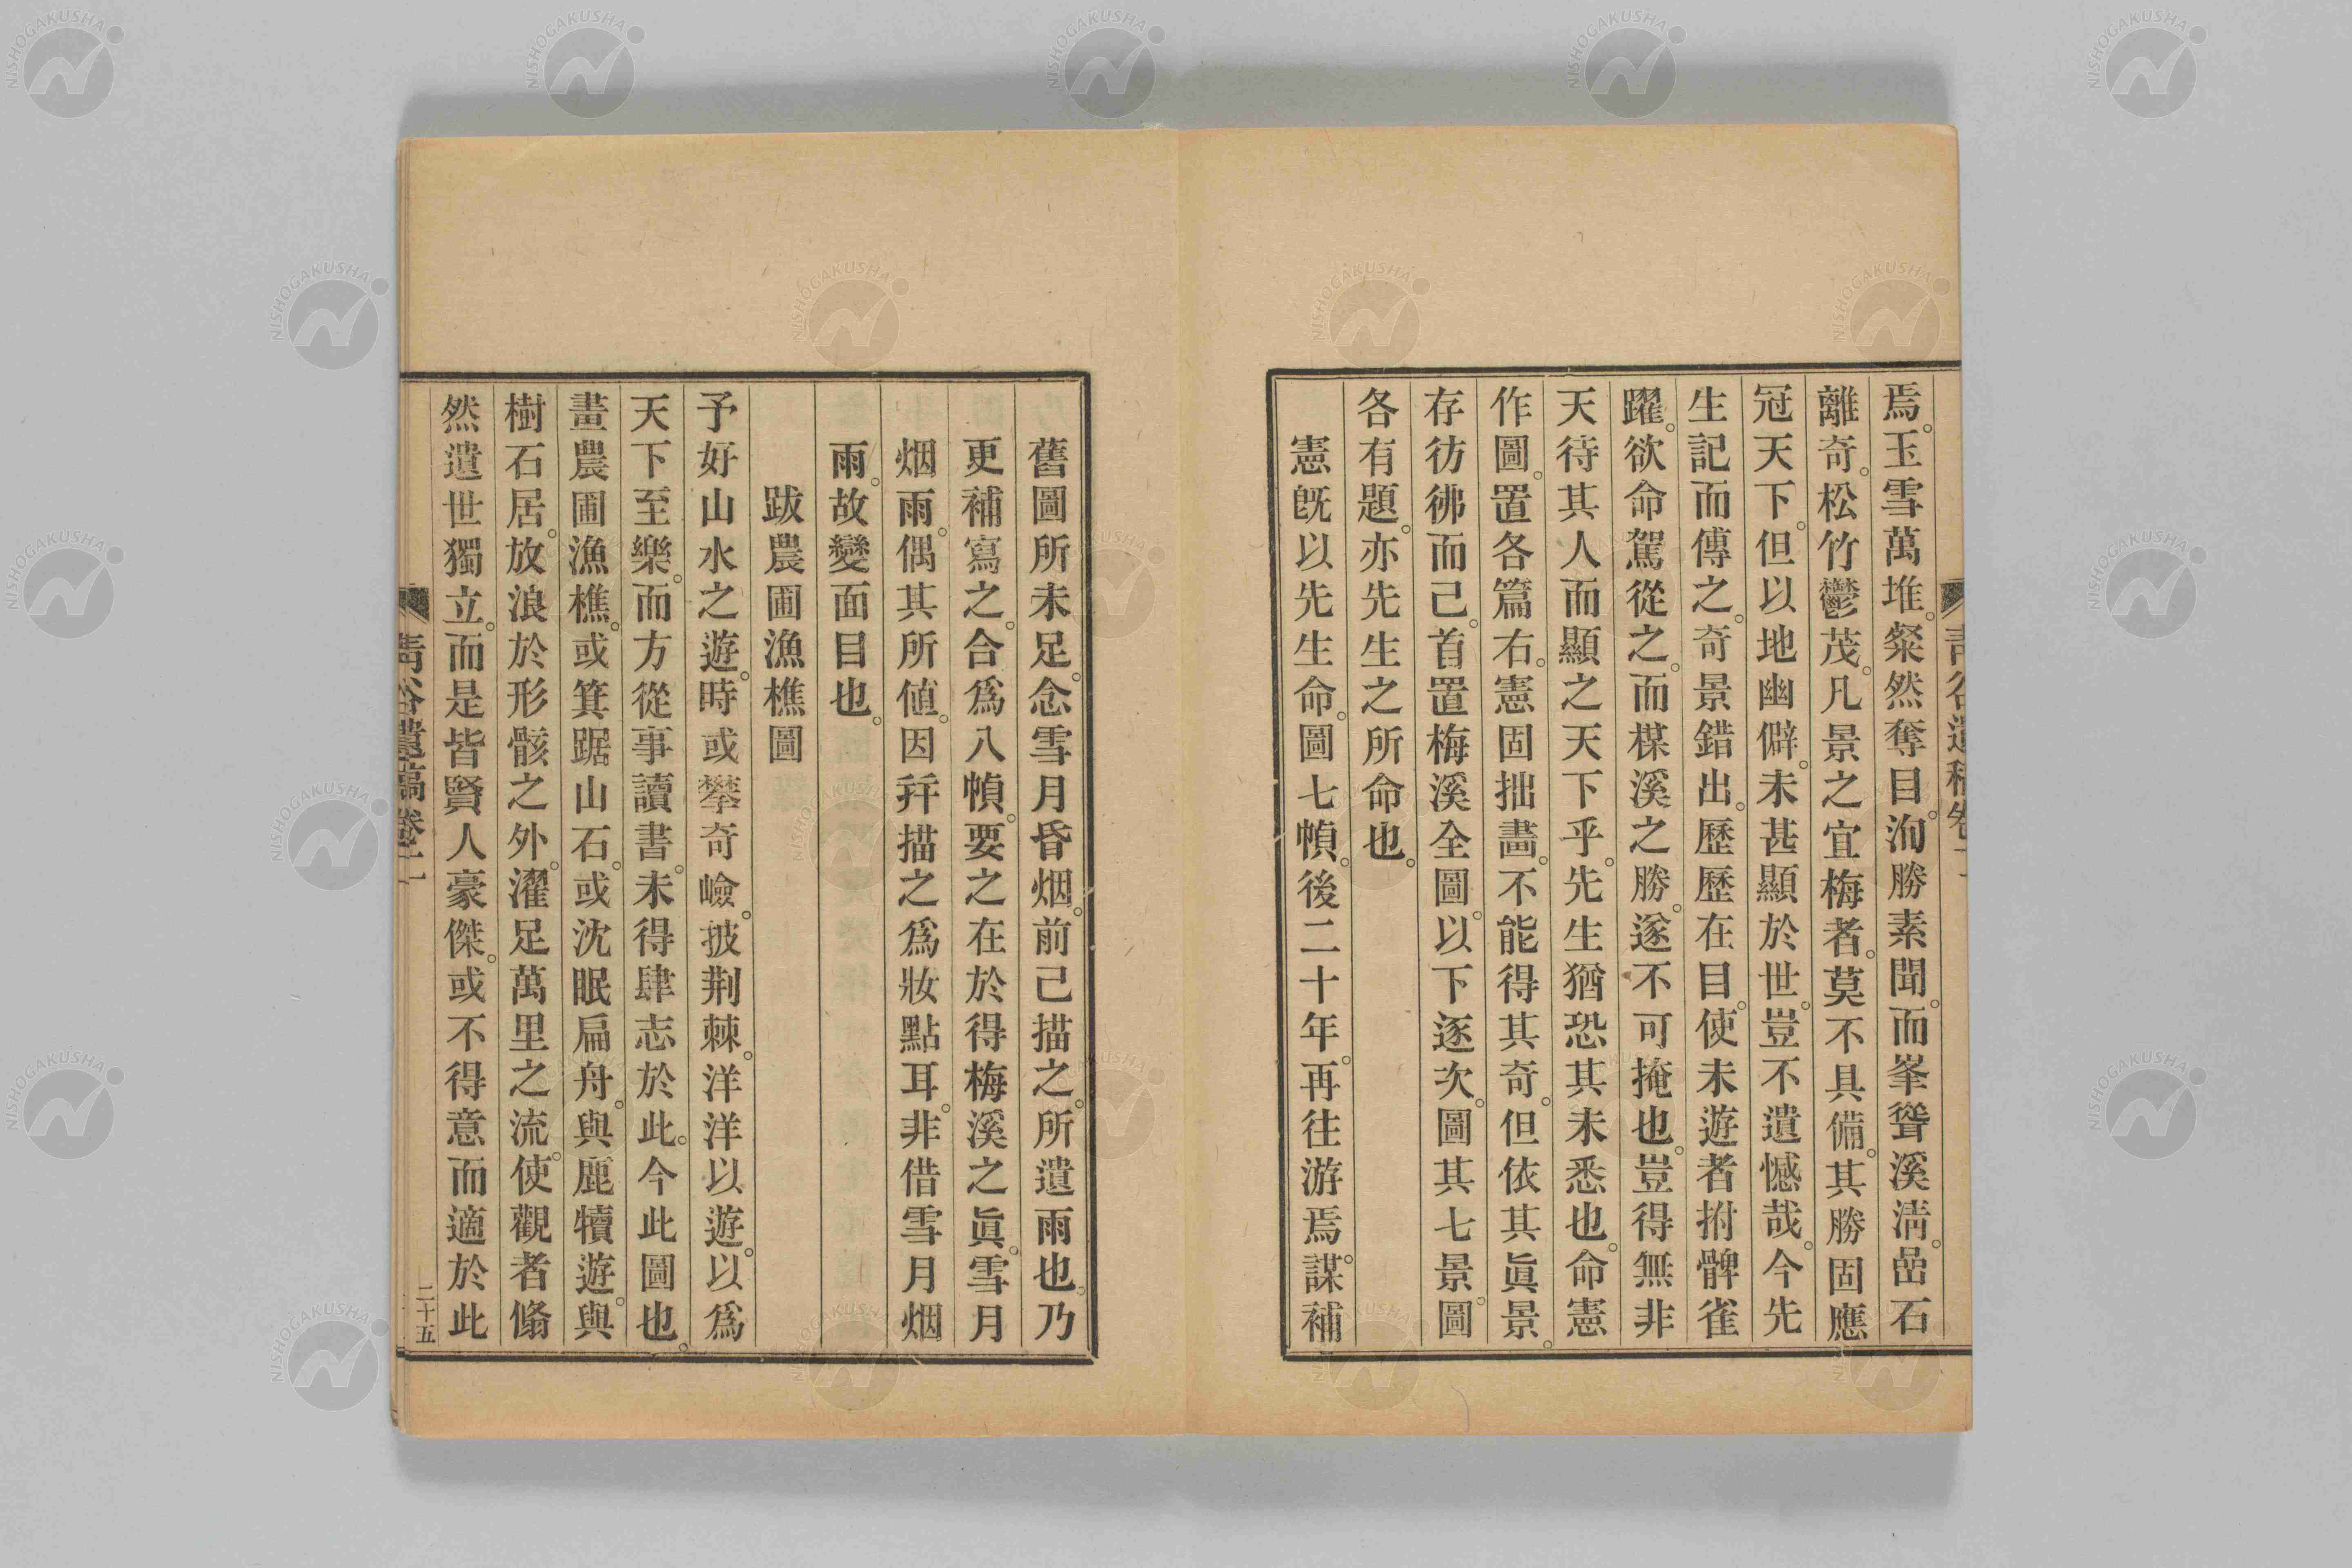 焉。玉雪萬堆。粲然奪目。洵勝素聞。而峯聳溪淸。嵒石
離奇。松竹鬱茂。凡景之宜梅者。莫不具備。其勝固應
冠天下。但以地幽僻。未甚顯於世。豈不遺憾哉。今先
生記而傳之。奇景錯出。歷歷在目。使未遊者拊髀雀
躍。欲命駕從之。而楳溪之勝。遂不可掩也。豈得無非
天待其人而顯之天下乎。先生猶恐其未悉也。命憲
作圖。置各篇右。憲固拙畵。不能得其奇。但依其眞景。
存彷彿而己。首置梅溪全圖。以下逐次。圖其七景。圖
各有題。亦先生之所命也。
憲既以先生命。圖七幀。後二十年。再往游焉。謀補
舊圖所未足。念雪月昏烟。前己描之。所遺雨也。乃
更補寫之。合爲八幀。要之在於得梅溪之眞。雪月
烟雨。偶其所値。因幷描之爲妝點耳。非借雪月烟
雨。故變面目也。
跋農圃漁樵圖
予好山水之遊。時或攀奇嶮。披荆棘。洋洋以遊。以爲
天下至樂。而方從事讀書。未得肆志於此。今此圖也。
畫農圃漁樵。或箕踞山石。或沈眠扁舟。與鹿犢遊。與
樹石居。放浪於形骸之外。濯足萬里之流。使觀者翛
然遺世獨立。而是皆賢人豪傑。或不得意而適於此
靑谷遺稿卷二
二十五
NISHOGAKUSHA